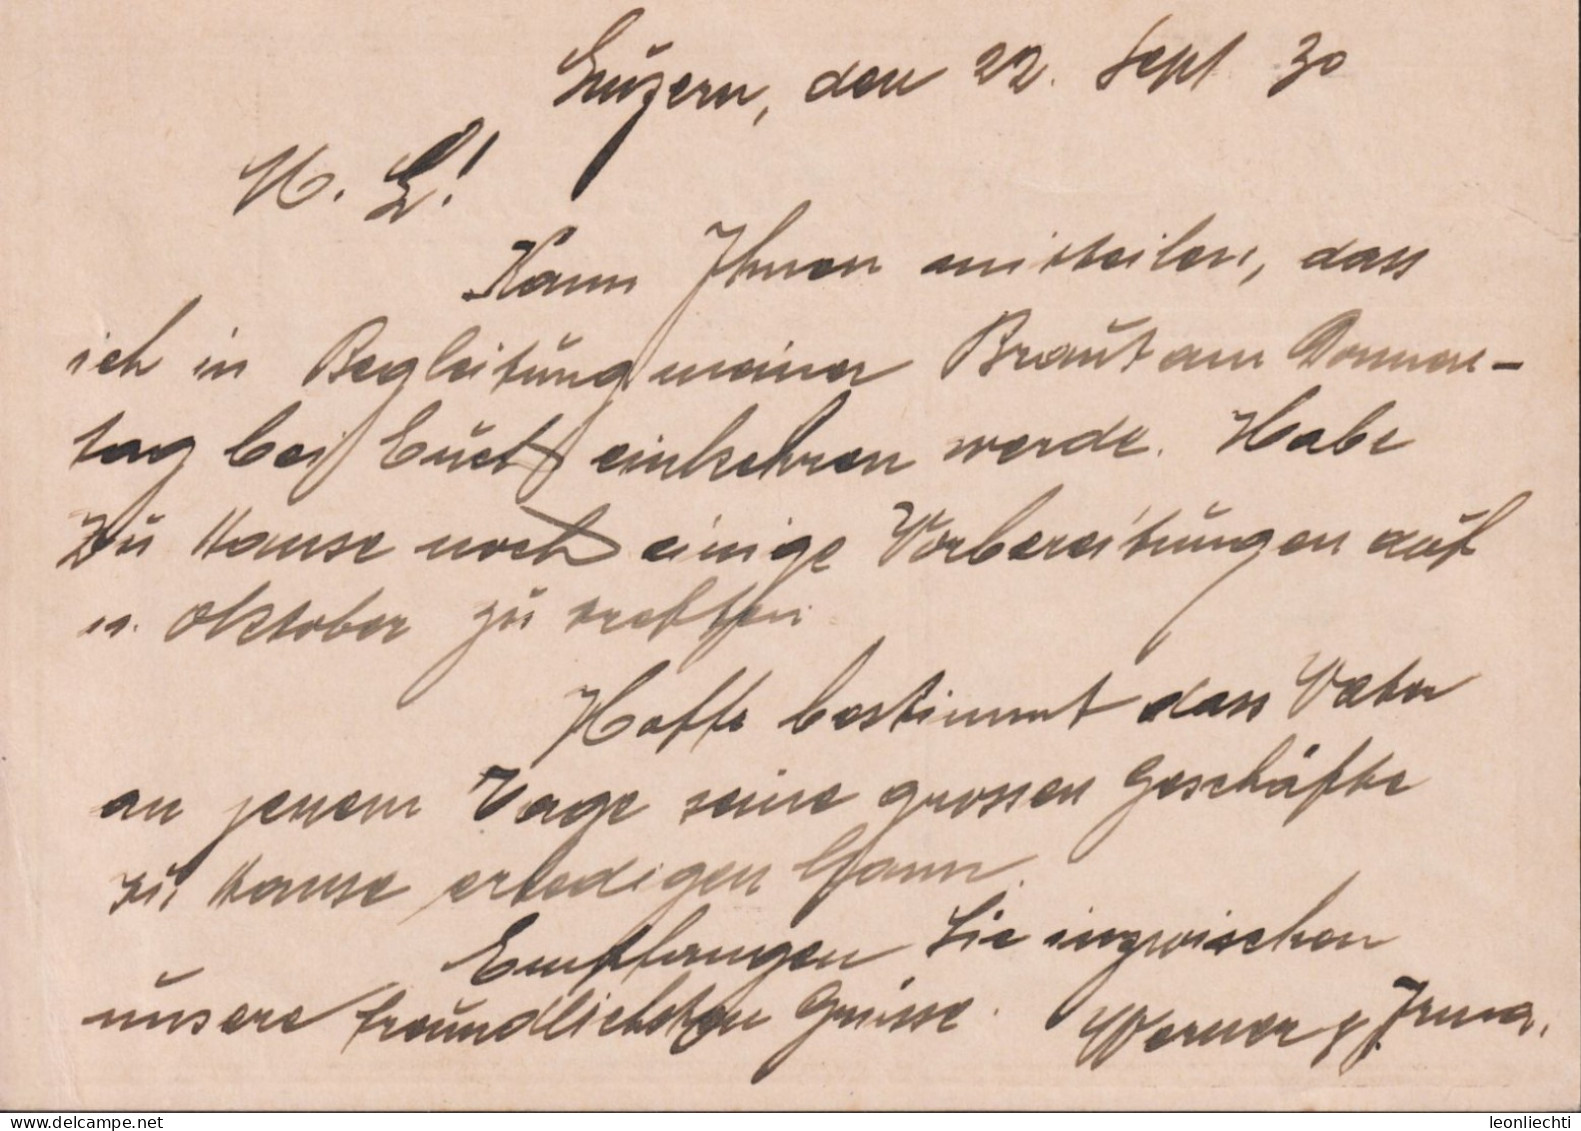 Luzern, den 22. Sept 30
M. L!
Kann Ihnen mitteilen, dass
ich in Begleitung meiner Braut am Donners-
tag bei Euch einkehren werde. Habe
zu Hause noch einige Vorbereitungen auf
n. Oktober zu treffen.
Hoffe bestimmt dass Vater
an jenem Tage seine grossen Geschäfte
zu Hause erledigen kann.
Empfangen Sie inzwischen
unsere freundlichsten Grüsse. Werner & Irma.
www.delcampe.net
leonliechti